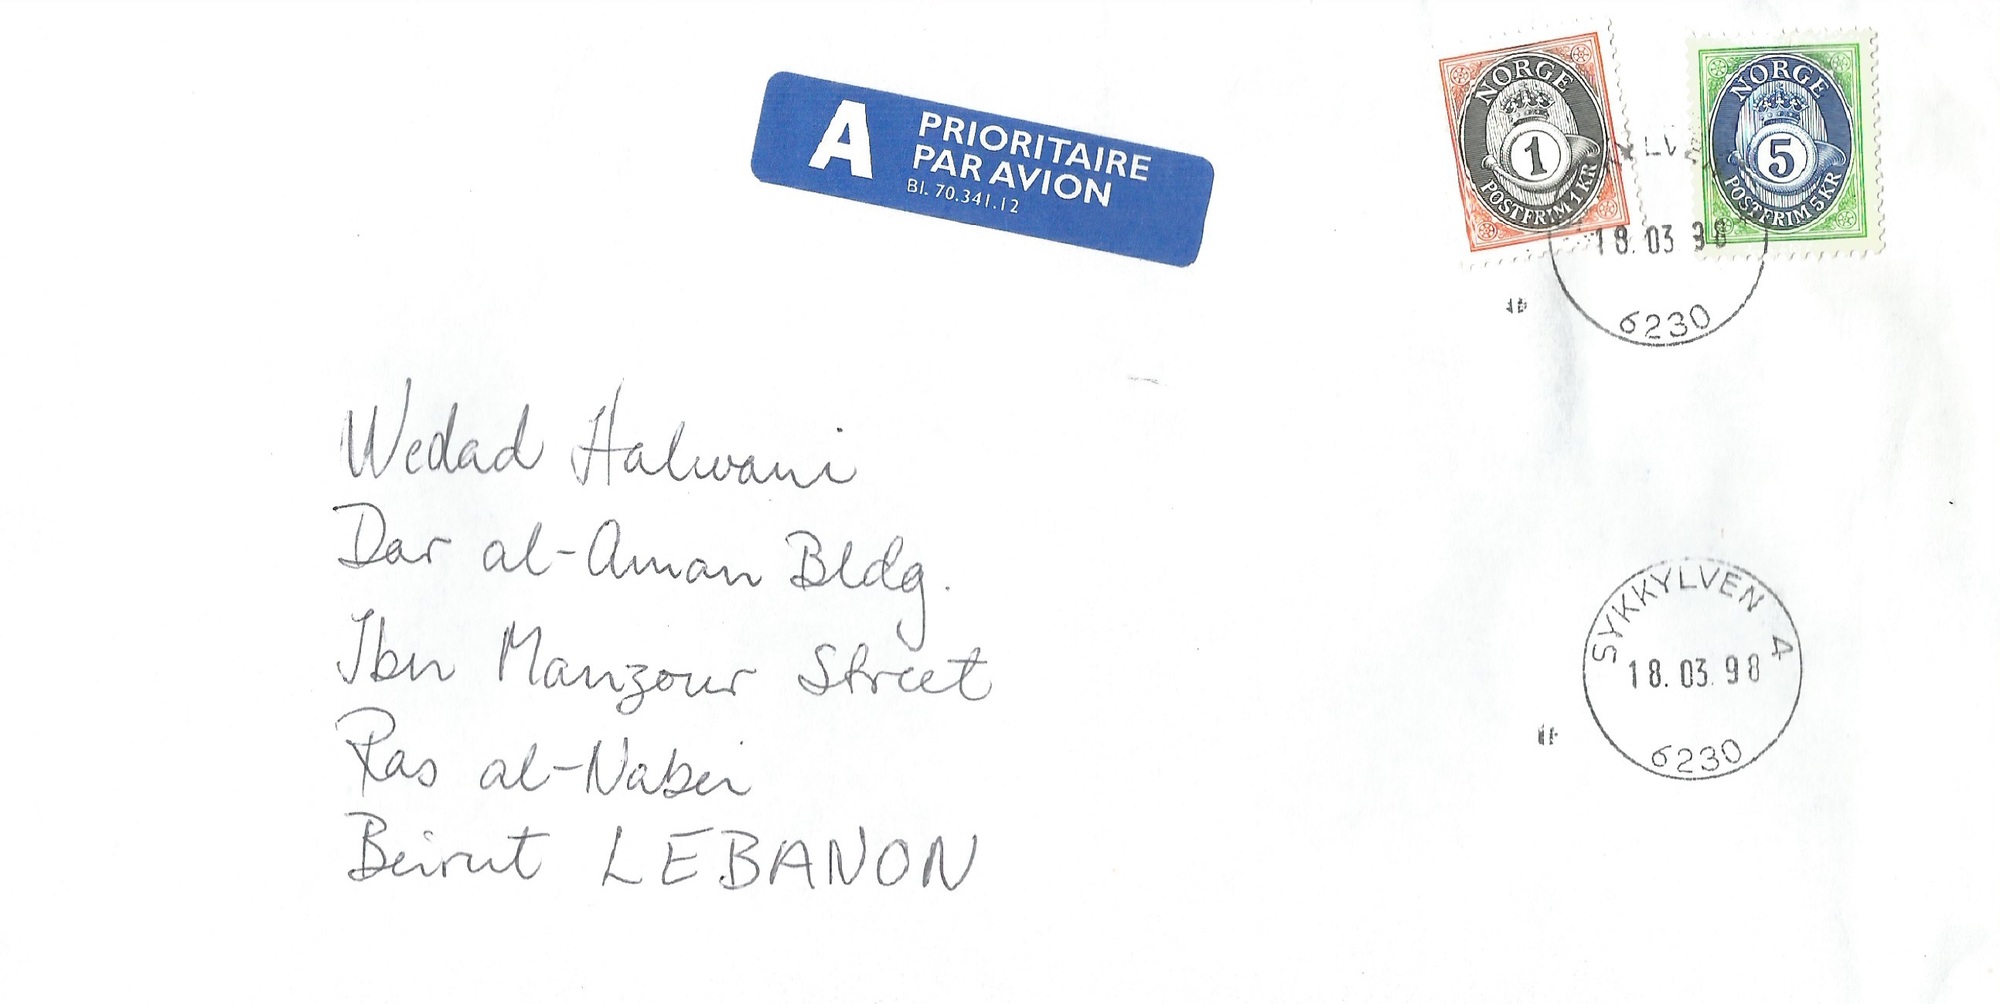 A
PRIORITAIRE
PAR AVION
Bl. 70.341.12
NORGE
1
POSTFRIM 1 KR
NORGE
5
POSTFRIM 5 KR
18.03 98
6230
Wedad Halwani
Dar al-Aman Bldg.
Ibn Manzour Street
Ras al-Nabei
Beirut LEBANON
SYKKYLVEN 4
18.03.98
6230